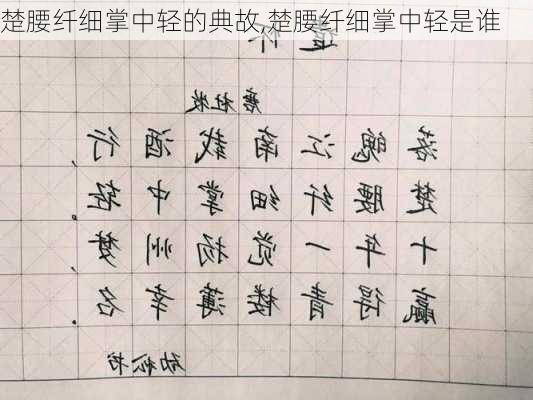 楚腰纤细掌中轻的典故,楚腰纤细掌中轻是谁
遣怀
唐杜牧
落魄江南载酒行
楚腰纤细掌中轻。
十年一觉扬州梦
赢得青楼薄幸名。
书